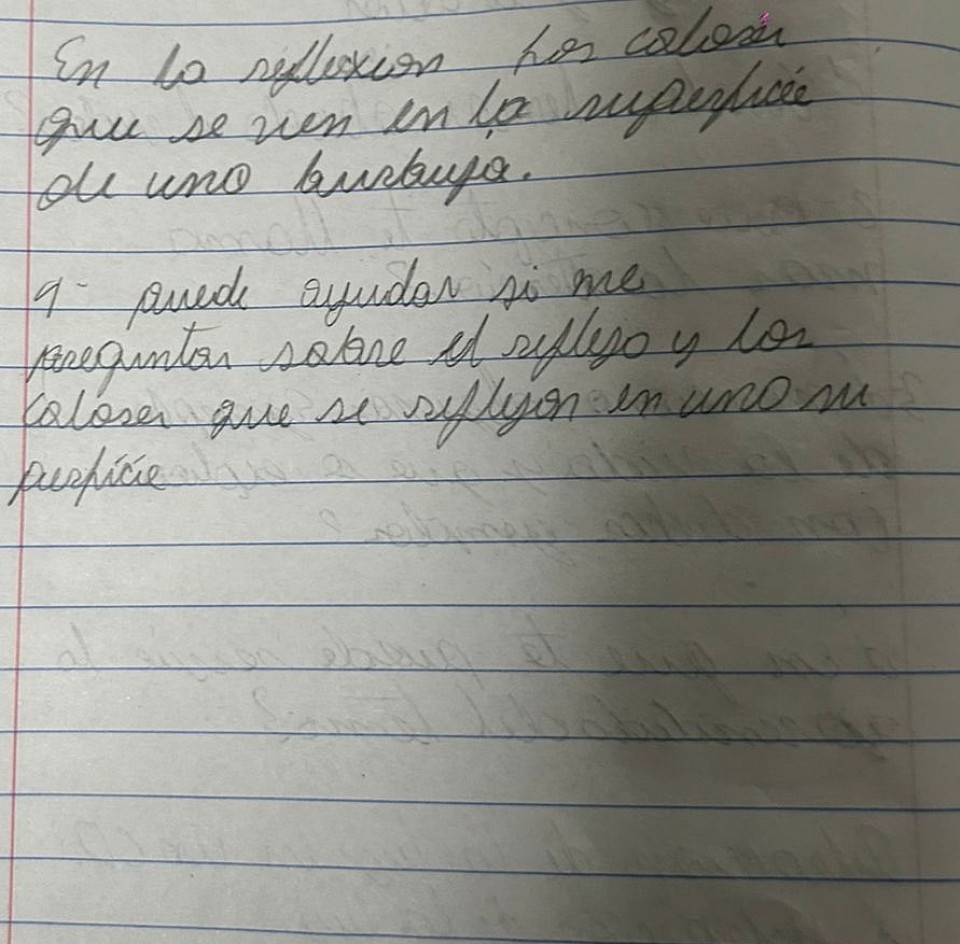 En la reflexion los colores
que se ven en la superficie
de una burbuja.
4- puede ayudar si me
preguntan sobre el reflejo y los
colores que se reflejan en una su
perficie